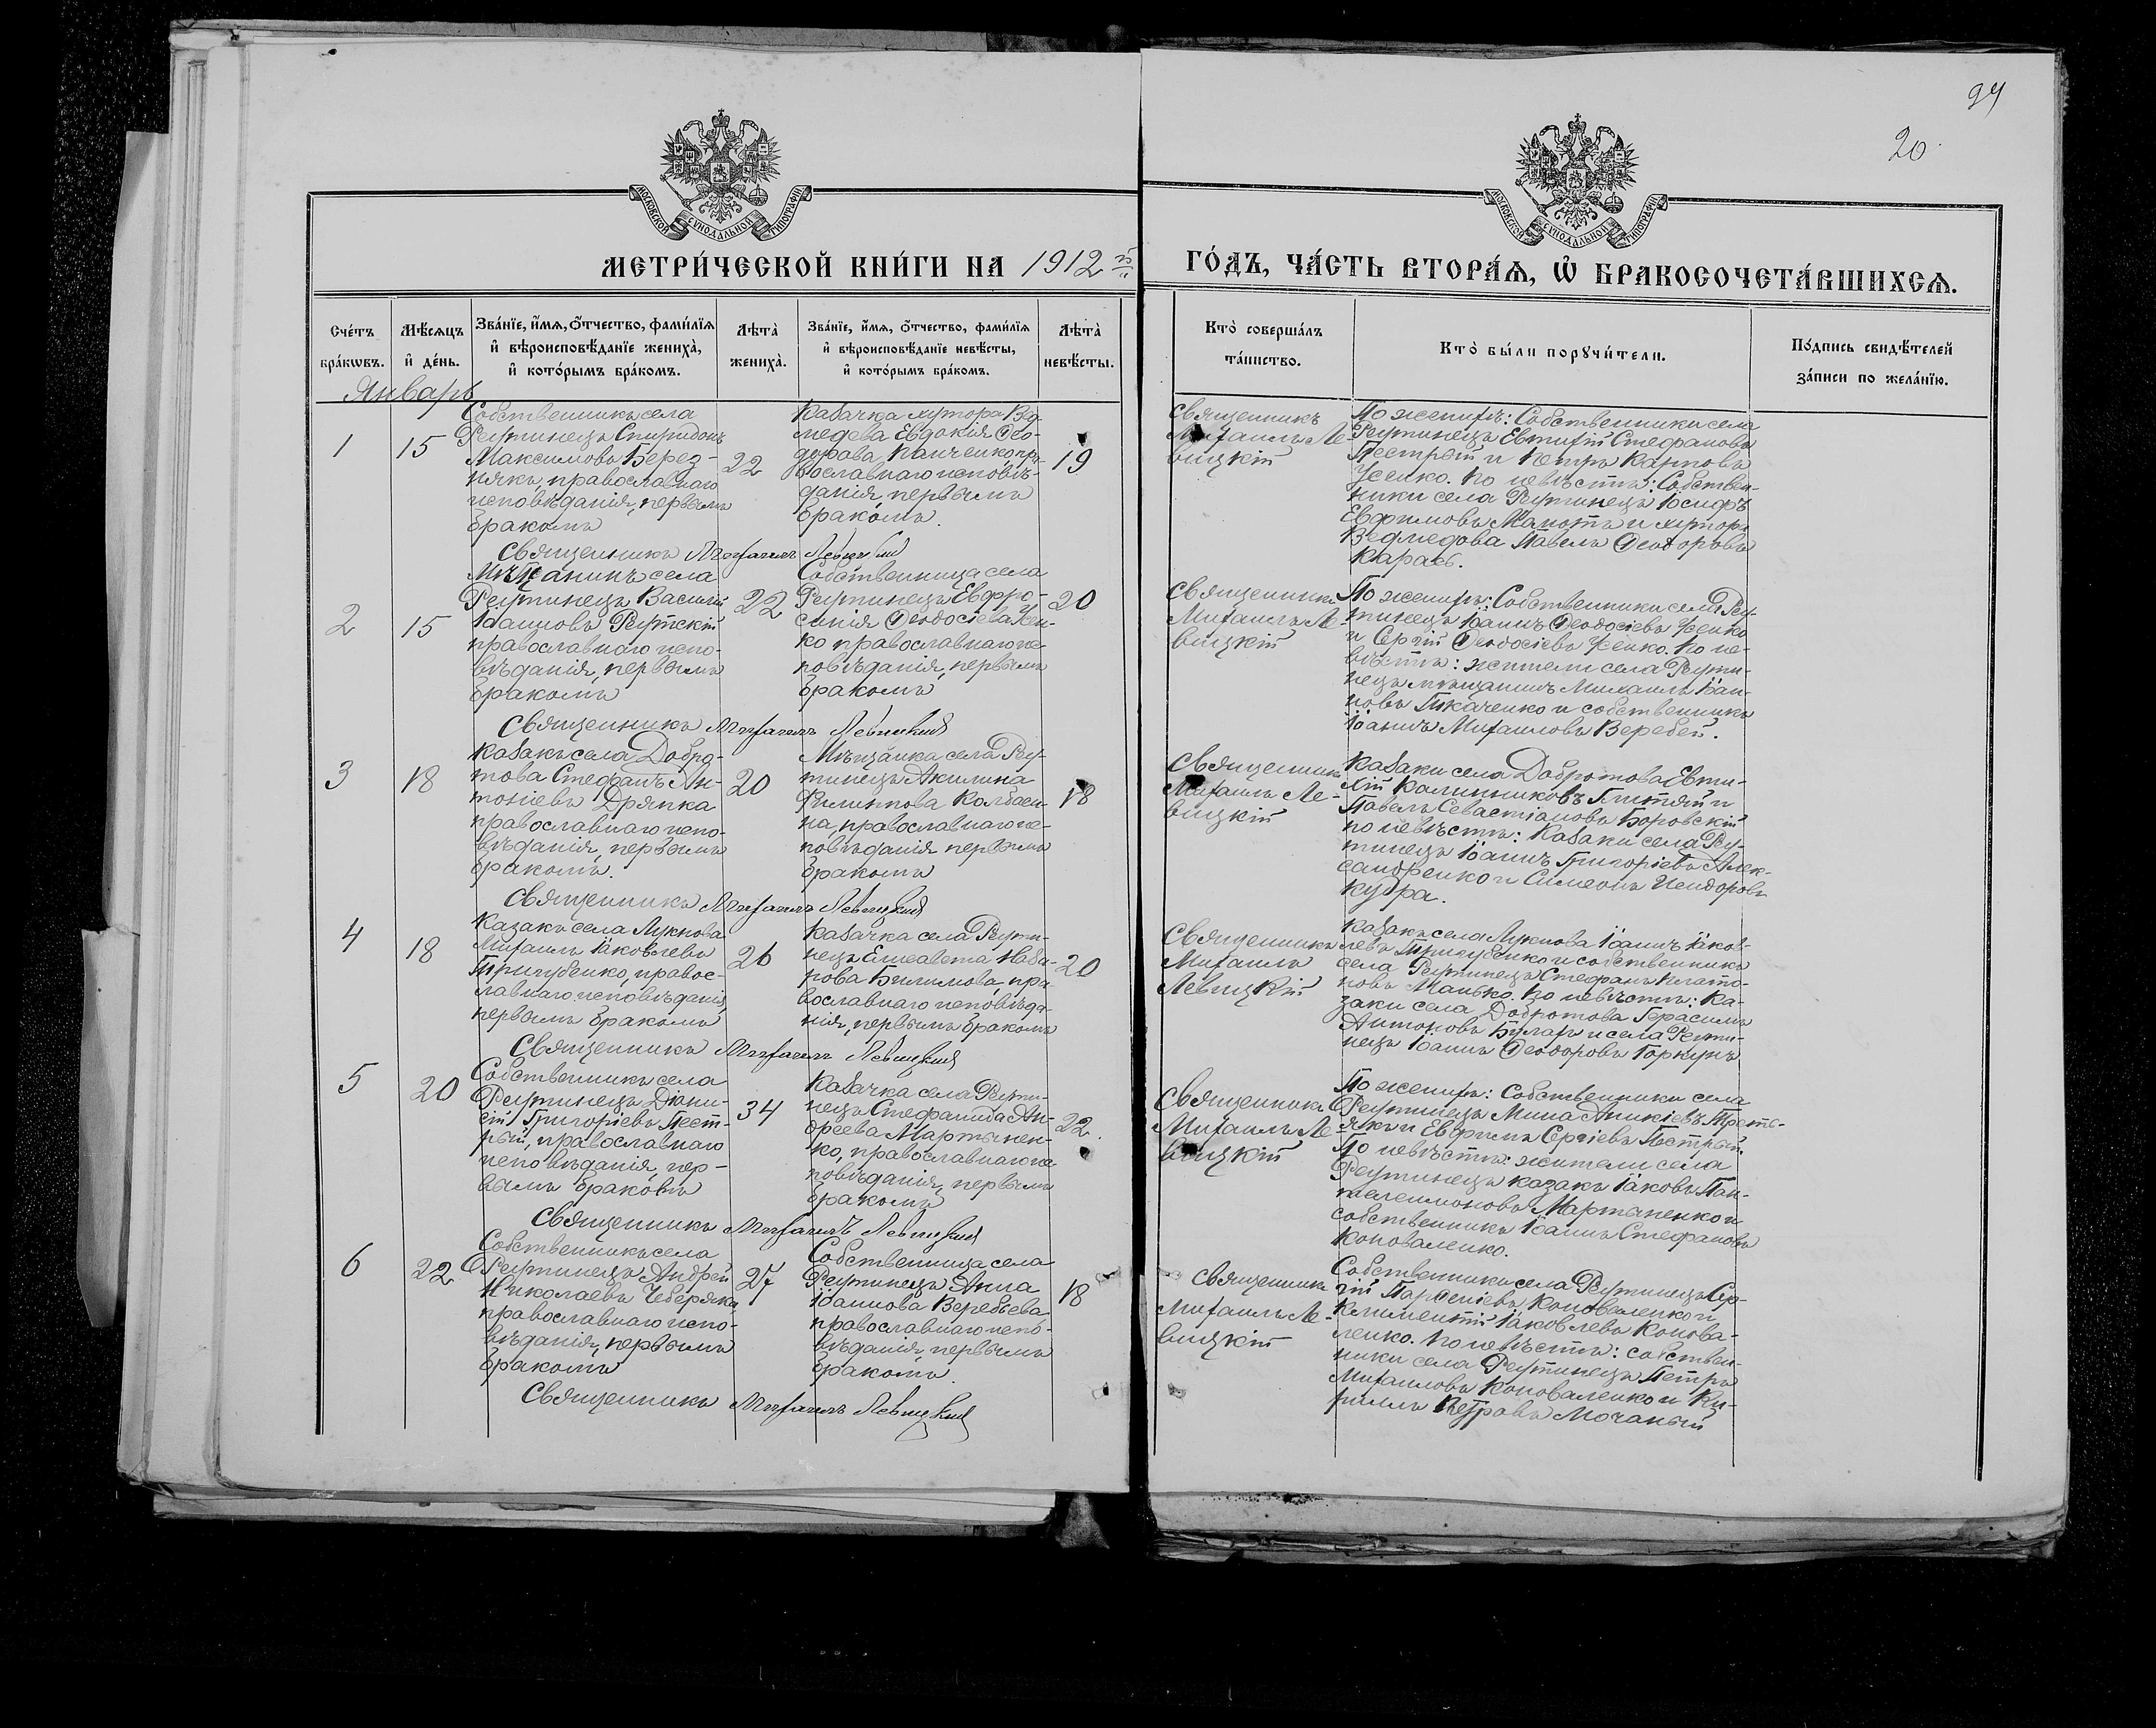 94
20
МОСКОВСКОЙ СѴНОДАЛЬНОЙ ТИПОГРАФІИ
МОСКОВСКОЙ СѴНОДАЛЬНОЙ ТИПОГРАФІИ
МЕТРИ́ЧЕСКОЙ КНИ́ГИ НА 1912 й
ГО́ДЪ, ЧА́СТЬ ВТОРА́Ѧ, Ѽ БРАКОСОЧЕТА́ВШИХСѦ.
Сче́тъ бра́кѡвъ.
Мѣ́сѧцъ и҆ де́нь.
Зва́нїе, и҆́мѧ, ѻ҆́тчество, фами́лїѧ и҆ вѣроисповѣ́данїе жениха̀, и҆ кото́рымъ бра́комъ.
Лѣта̀ жениха̀.
Зва́нїе, и҆́мѧ, ѻ҆́тчество, фами́лїѧ и҆ вѣроисповѣ́данїе невѣ́сты, и҆ кото́рымъ бра́комъ.
Лѣта̀ невѣ́сты.
Кто̀ соверша́лъ та́инство.
Кто̀ бы́ли порꙋчи́тели.
По́дпись свидѣ́телей за́писи по жела́нїю.
Январь
1
15
Собственникъ села
Реутинецъ Спиридонъ
Максимовъ Берез-
някъ, православнаго
исповѣданія, первымъ
бракомъ
22
Казачка хутора Вед-
медева Евдокія Ѳео-
дорова Панченко, пра-
вославнаго исповѣ-
данія, первымъ
бракомъ.
19
Священникъ
Михаилъ Ле-
вицкій
По женихѣ: Собственники села
Реутинецъ Евтихій Стефановъ
Пестрый и Петръ Карповъ
Усенко. По невѣстѣ: Собствен-
ники села Реутинецъ Іосифъ
Евфимовъ и хутора
Ведмедова Павелъ Ѳеодоровъ
Карась.
Священникъ Михаилъ Левицкій
2
15
Мѣщанинъ села
Реутинецъ Василій
Іоанновъ Реутскій
православнаго испо-
вѣданія, первымъ
бракомъ
22
Собственница села
Реутинецъ Евфро-
синія Ѳеодосіева Усен-
ко православнаго ис-
повѣданія, первымъ
бракомъ
20
Священникъ
Михаилъ Ле-
вицкій
По женихѣ: Собственники села Реу-
тинецъ Іоаннъ Ѳеодосіевъ Усенко
и Сергій Ѳеодосіевъ Усенко. По не-
вѣстѣ: жители села Реути-
нецъ мѣщанинъ Михаилъ Іоан-
новъ Ткаченко и собственникъ
Іоаннъ Михаиловъ Веребей.
Священникъ Михаилъ Левицкій
3
18
Казакъ села Добро-
това Стефанъ Ан-
тоніевъ Дряпка
православнаго испо-
вѣданія, первымъ
бракомъ.
20
Мѣщанка села Реу-
тинецъ Акилина
Филиппова Колбаси-
на, православнаго ис-
повѣданія первымъ
бракомъ
18
Священникъ
Михаилъ Ле-
вицкій
Казаки села Добротова Евти-
хій Калинниковъ и
Павелъ Севастіановъ Боровскій
по невѣстѣ: Казаки села Реу-
тинецъ Іоаннъ Григоріевъ Алек-
сандренко и Симеонъ Исидоровъ
Кубра.
Священникъ Михаилъ Левицкій
4
18
Казакъ села Лукнова
Михаилъ Іаковлевъ
Тригубенко, правос-
лавнаго исповѣданія,
первымъ бракомъ
26
Казачка села Реути-
нецъ Елисавета
Билимова, пра-
вославнаго исповѣда-
нія, первымъ бракомъ
20
Священникъ
Михаилъ
Левицкій
Казакъ села Лукнова Іоаннъ Іаков-
левъ Тригубенко и собственникъ
села Реутинецъ Стефанъ Плато-
новъ Манько. По невѣстѣ: Ка-
заки села Добротова Герасимъ
Антоновъ Булахъ и села Реути-
нецъ Іоаннъ Ѳеодоровъ Горкунъ
Священникъ Михаилъ Левицкій
5
20
Собственникъ села
Реутинецъ Діони-
сій Григоріевъ Пест-
рый, православнаго
исповѣданія, пер-
вымъ бракомъ
34
Казачка села Реути-
нецъ Стефанида Ан-
дреева Мартынен-
ко, православнаго ис-
повѣданія, первымъ
бракомъ
22.
Священникъ
Михаилъ Ле-
вицкій
По женихѣ: Собственники села
Реутинецъ Мина Аникіевъ Треть-
якъ и Евфимъ Сергіевъ Пестрый.
По невѣстѣ: жители села
Реутинецъ казакъ Іаковъ Пан-
телеимоновъ Мартыненко и
собственникъ Іоаннъ Стефановъ
Коноваленко.
Священникъ Михаилъ Левицкій
6
22
Собственникъ села
Реутинецъ Андрей
Николаевъ Чеберяка,
православнаго испо-
вѣданія, первымъ
бракомъ
27
Собственница села
Реутинецъ Анна
Іоаннова Веребьева
православнаго испо-
вѣданія, первымъ
бракомъ.
18
Священникъ
Михаилъ Ле-
вицкій
Собственники села Реутинецъ Сер-
гій Парѳеніевъ Коноваленко и
Климентій Іаковлевъ Конова-
ленко. По невѣстѣ: собствен-
ники села Реутинецъ Петръ
Михаиловъ Коноваленко и Ки-
риллъ Петровъ Мочаный
Священникъ Михаилъ Левицкій